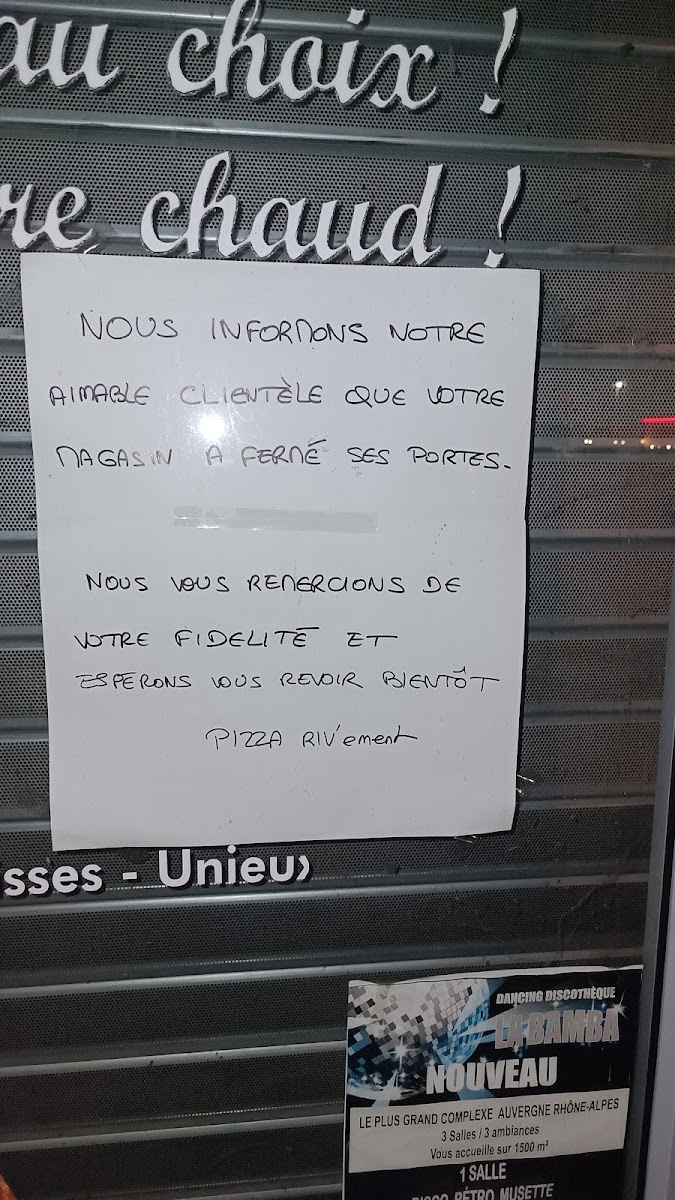 au choix !
re chaud !
NOUS INFORMONS NOTRE
AIMABLE CLIENTÈLE QUE VOTRE
MAGASIN A FERMÉ SES PORTES.
NOUS VOUS REMERCIONS DE
VOTRE FIDELITÉ ET
ESPERONS VOUS REVOIR BIENTÔT
PIZZA RIV'ement
sses - Unieu
DANCING DISCOTHÈQUE
LA BAMBA
NOUVEAU
LE PLUS GRAND COMPLEXE AUVERGNE RHÔNE-ALPES
3 Salles / 3 ambiances
Vous accueille sur 1500 m²
1 SALLE
DISCO RÉTRO MUSETTE